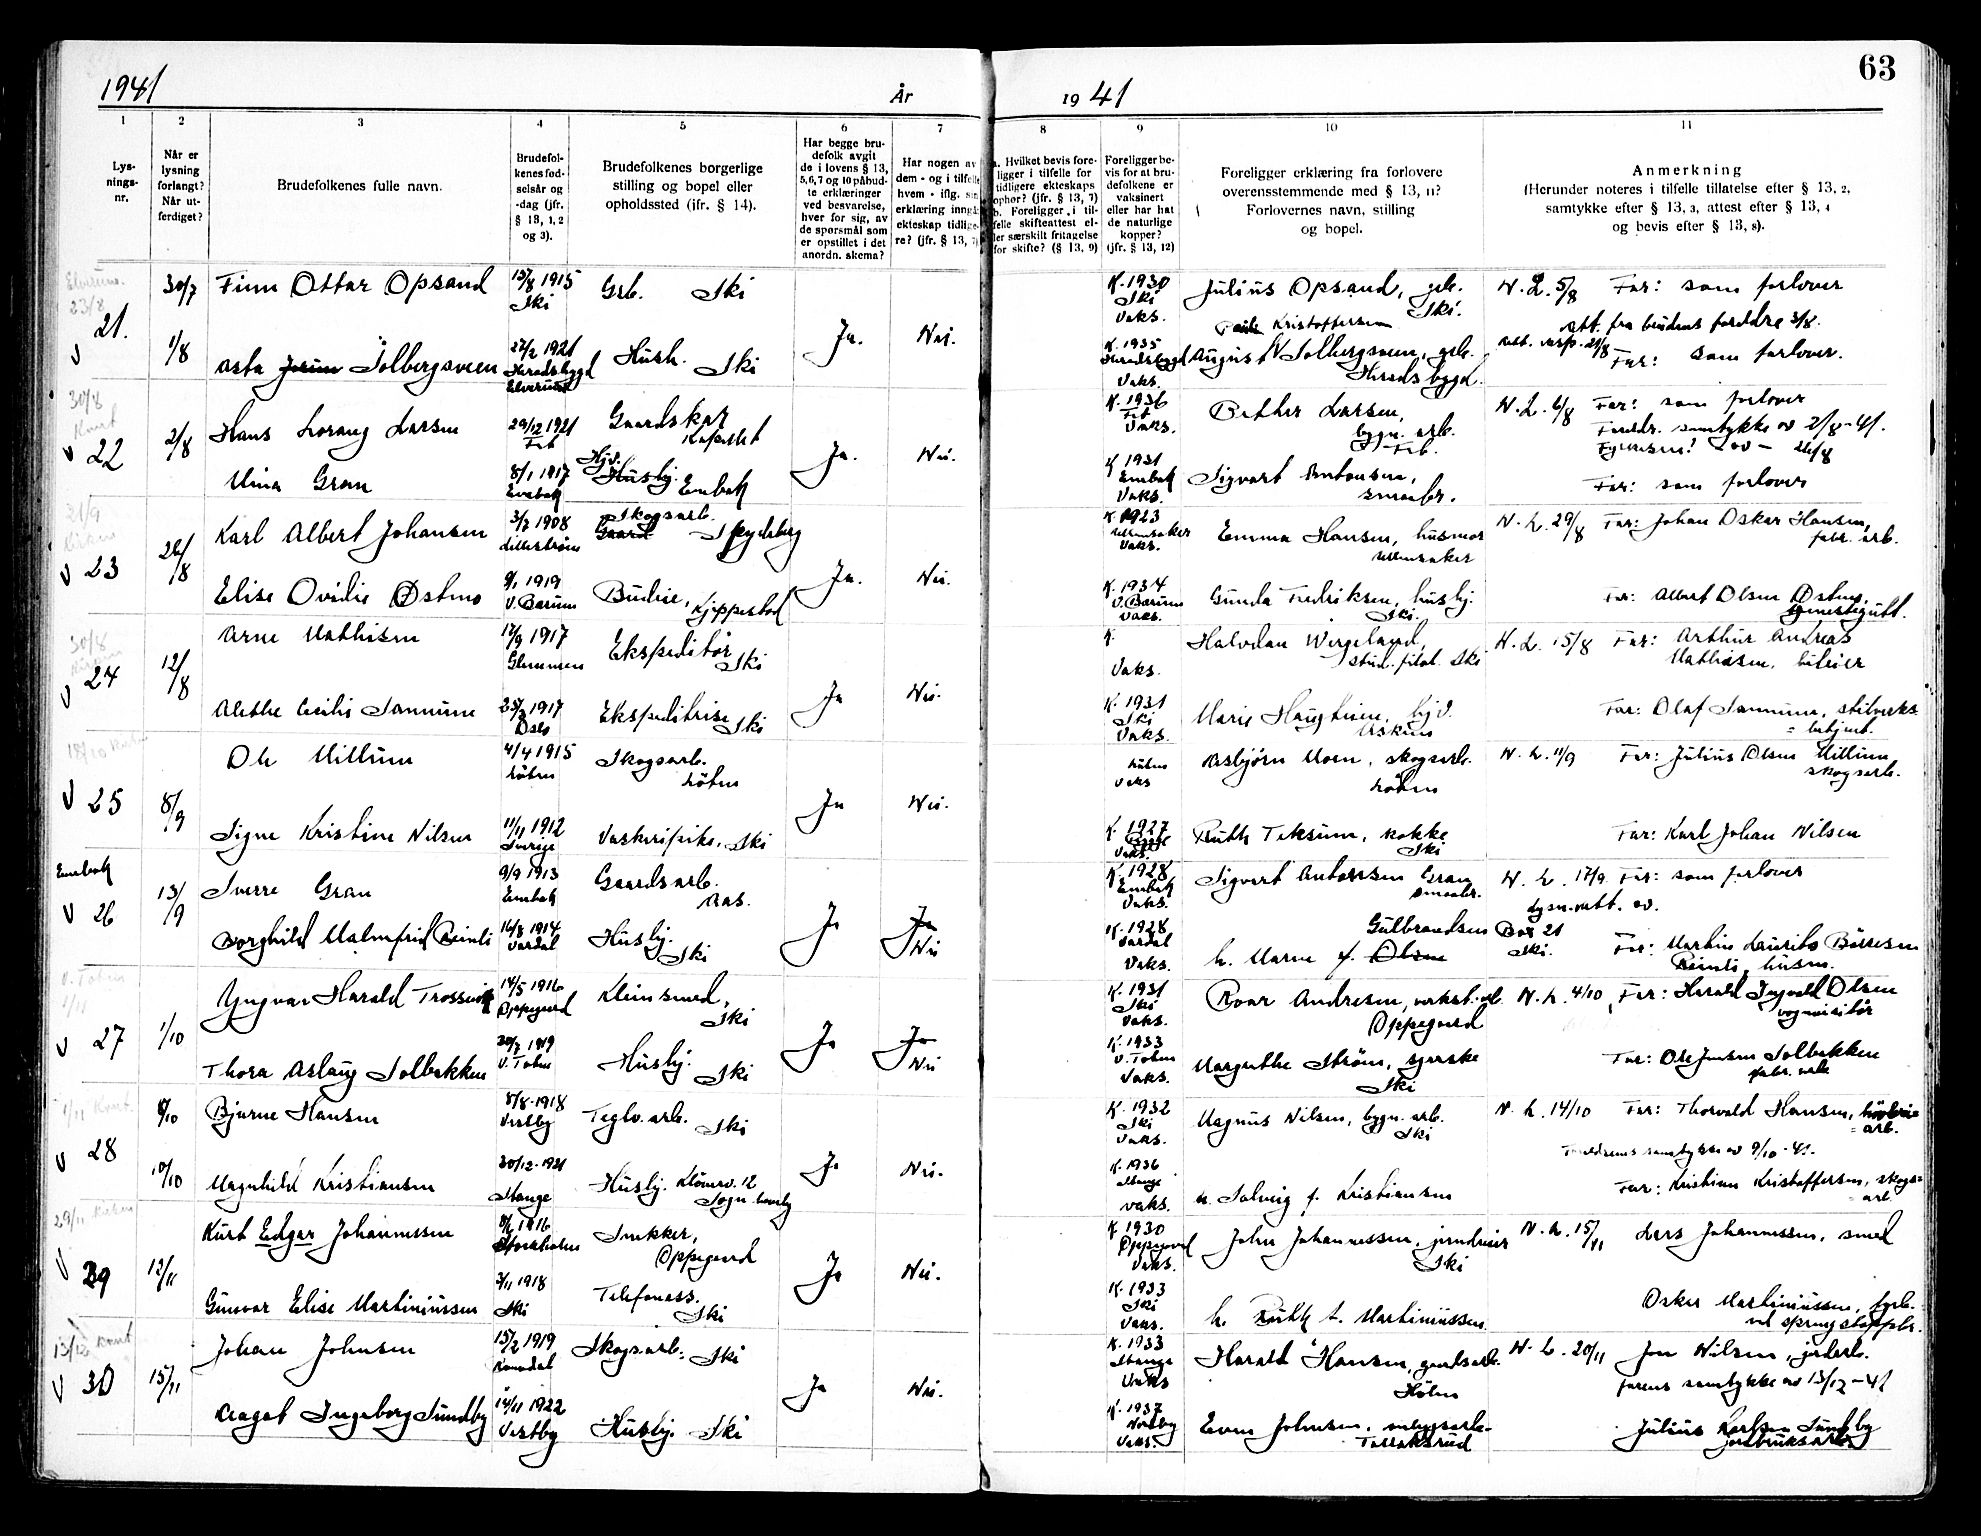 63
1941
År
1941
1
2
3
4
5
6
7
8
9
10
11
Lys-
nings-
nr.
Når er
lysning
forlangt?
Når ut-
ferdiget?
Brudefolkenes fulle navn.
Brudefol-
kenes fød-
selsår og
-dag (jfr.
§ 13, 1, 2
og 3).
Brudefolkenes borgerlige
stilling og bopel eller
opholdssted (ifr. § 14).
Har begge bru-
defolk avgit
de i lovens § 13,
5,6,7 og 10 påbud-
te erklæringer
ved besvarelse,
hver for sig, av
de spørsmål som
er opstillet i det
anordn. skema?
Har nogen av
dem - og i tilfelle
hvem - iflg. sin
erklæring inngå
ekteskap tidlige-
re? (jfr. § 13, 7)
a. Hvilket bevis fore-
ligger i tilfelle for
tidligere ekteskaps
ophør? (jfr. § 13, 7)
b. Foreligger i til-
felle skifteattest el-
ler særskilt fritagelse
for skifte? (§ 13, 9)
Foreligger be-
vis for at bru-
defolkene er
vaksinert
eller har hat
de naturlige
kopper?
(jfr. § 13, 12)
Foreligger erklæring fra forlovere
overensstemmende med § 13, 11?
Forlovernes navn, stilling
og bopel.
Anmerkning
(Herunder noteres i tilfelle tillatelse efter § 13, 2,
samtykke efter § 13, 3, attest efter § 13, 4
og bevis efter § 13, 8).
23/8
21.
30/7
1/8
Finn Ottar Opsand
15/8 1915
Ski
Grb. Ski
Ja.
Nei.
K. 1930
Ski
Vaks.
Julius Opsand, grb.
Ski.
N. L. 5/8
Far: som forlover
Att. fra brudens foreldre 3/8.
Asta Solbergsveen
27/2 1921
Heradsbygd
Elverum
Hush. Ski
K. 1935
Heradsbygd
Vaks.
Kristoffersen
August Solbergsveen, grb.
Heradsbygd.
Far: som forlover.
30/8
22
2/8
Hans Lorang Larsen
29/12 1921
Gaardskar
Ja.
Nei.
K. 1936
Vaks.
Larsen,
bygn. arb.
N. L. 6/8
Far: som forlover
Foreldr. samtykke av 2/8-41.
Mina Gran
8/1 1917
Enebak
Husbj. Enebak
K 1931
Enebak
Vaks.
Sigvart Antonsen,
smabr.
Far: som forlover
23
26/8
Karl Albert Johansen
3/7 1908
Lillestrøm
Skogsarb.
Spydeberg
Ja.
Nei.
K. 1923
Ullensaker
Vaks.
Emma Hansen, husmor
Ullensaker
N. L. 29/8
Far: Johan Oskar Hansen,
fabr. arb.
Elise Ovidie Østmo
9/1 1919
V. Bærum
Budeie, Kjeppestad
K. 1934
V. Bærum
Vaks.
Gunda Fredriksen, husbj.
Ski.
Far: Albert Olsen Østmo,
30/8
24
12/8
Arne Mathisen
17/9 1917
Glemmen
Ekspeditør
Ski
Ja
Nei.
K.
Vaks.
Halvdan Wergeland,
stud. filol. Ski
N. L. 15/8
Far: Arthur Andreas
Mathisen, bileier
Alethe Cecilie Sannum
1917
Oslo
Ekspeditrise
Ski
K. 1931
Ski
Vaks.
Marie Haugtrien, hjv.
Askim
Far: Olaf Sannum, stilverks
= betjent.
25
8/9
Ole Millum
4/4 1915
Løten
Skogsarb.
Løten
Ja
Nei.
Løten
Vaks
Asbjørn Moen, skogsarb.
Løten
N. L. 11/9
Far: Julius Olsen Millum
skogsarb.
Signe Kristine Nilsen
11/11 1912
Sverige
Vaskeripike, Ski
K. 1927
Vaks.
Ruth Teksum, kokke
Ski
Far: Karl Johan Nilsen
Enebak
26
13/9
Sverre Gran
9/9 1913
Enebak
Gaardsarb.
Aas.
Ja
Ja
Nei
K. 1928
Enebak
Vaks.
Sigvart Antonsen Gran
smaabr.
N. L. 17/9
Far: som forlover
Borghild Malmfrid Reinli
16/8 1914
Vardal
Husbj.
Ski
K. 1928
Vardal
Vaks.
h. Marne f. Olsen
Gulbrandsen
Box 21
Ski.
Far: Martin Laurits Børresen
Reinli, husm.
27
1/10
Yngvar Harald Trosvik
14/5 1916
Oppegård
Kleinsmed,
Ski
Ja
Ja
Nei
K. 1931
Ski
Vaks.
Roar Andresen, verkst. arb.
Oppegård
N. L. 4/10
Far: Harald Ingvald Olsen
vognvisitør
Thora Aslaug Solbakken
1919
V. Toten
Husbj.
Ski
K. 1933
V. Toten
Vaks.
Margrethe Strøm, syerske
Ski
Far: Ole Jensen Solbakken
fabr. arb.
28
8/10
10/10
Bjarne Hansen
8/8-1918
Vestby
Teglv. arb. Ski
Ja
Nei.
K. 1932
Ski
Vaks.
Magnus Nilsen, bygn. arb.
Ski
N. L. 14/10
Far: Thorvald Hansen,
= arb.
Foreldrenes samtykke av 9/10-41.
Magnhild Kristiansen
30/12-1921
Stange
Husbj.
K. 1936
Stange
vaks.
u. Solveig f. Kristiansen
Far: Kristian Kristoffersen, skogs=
= arb
29/11
29
12/11
Kurt Edgar Johannessen
1916
Stockholm
Snekker,
Oppegård
Ja
Nei.
K 1930
Oppegård
Vaks.
John Johannessen, jerndreier
Ski
N. L. 15/11
Lars Johannessen, smed
Gunvor Elise Martiniussen
3/11 1918
Ski
Telefonass.
Ski
K. 1933
Ski
Vaks.
h. Ruth t. Martiniussen.
Oskar Martiniussen, fyrb.
ved sprengstoffabr.
13/12
30
15/11
Johan Johnsen
15/2 1919
Romedal
Skogsarb. Ski
Ja
Nei.
K. 1933
Stange
Vaks
Harald Hansen, gardsarb.
Hölen
N. L. 20/11
Jon Nilsen, jordarb.
farens samtykke av 13/12-41
Aagot Ingeborg Sundby
14/11 1922
Vestby
Husbj. Ski
K. 1937
Vestby
Vaks.
Even Johnsen, anlegsarb.
Tarraksrud
Julius Karlsen Sundby
jordbruksarb.